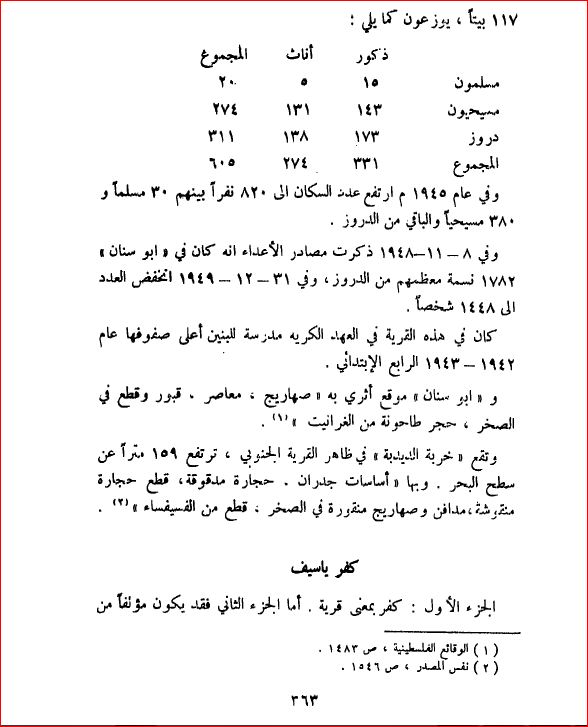 ١١٧ بيتاً ، يوزعون كما يلي :
ذكور أناث المجموع
مسلمون ١٥ ٥ ٢٠
مسيحيون ١٤٣ ١٣١ ٢٧٤
دروز ١٧٣ ١٣٨ ٣١١
المجموع ٣٣١ ٢٧٤ ٦٠٥
وفي عام ١٩٤٥ م ارتفع عدد السكان الى ٨٢٠ نفراً بينهم ٣٠ مسلماً و
٣٨٠ مسيحياً والباقي من الدروز .
وفي ٨ – ١١ –١٩٤٨ ذكرت مصادر الأعداء انه كان في « ابو سنان »
١٧٨٢ نسمة معظمهم من الدروز ، وفي ٣١ – ١٢ – ١٩٤٩ انخفض العدد
الى ١٤٤٨ شخصاً .
كان في هذه القرية في العهد الكريه مدرسة للبنين أعلى صفوفها عام
١٩٤٢ – ١٩٤٣ الرابع الإبتدائي .
و « ابو سنان » موقع أثري به « صهاريج ، معاصر ، قبور وقطع في
الصخر ، حجر طاحونة من الغرانيت » (١) .
وتقع « خربة الدبدبة » في ظاهر القرية الجنوبي ، ترتفع ١٥٩ متراً عن
سطح البحر . وبها « أساسات جدران . حجارة مدقوقة ، قطع حجارة
منقوشة ، مدافن وصهاريج منقورة في الصخر ، قطع من الفسيفساء » (٢) .
كفر ياسيف
الجزء الأول : كفر بمعنى قرية . أما الجزء الثاني فقد يكون مؤلفاً من
( ١ ) الوقائع الفلسطينية ، ص ١٤٨٣ .
( ٢ ) نفس المصدر ، ص ١٥٤٦ .
٣٦٣